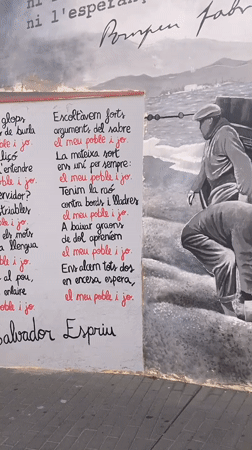 ni l
ni l'esperanç
Pompeu Fabr
glops
de burla
ble i jo.
lliçó
l'entendre
poble i jo.
servidor?
striables
ble i jo.
els mots
a llengua
ble i jo.
al pou,
enlaire
poble i jo
Escoltàvem forts
arguments del sabre
el meu poble i jo.
La mateixa sort
ens uní per sempre:
el meu poble i jo.
Tenim la raó
contra bords i lladres
el meu poble i jo.
A baixar graons
de dol aprenem
el meu poble i jo.
Ens alcem tots dos
en encesa espera,
el meu poble i jo.
Salvador Espriu